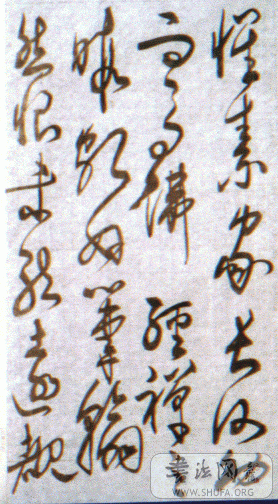 懷素家長沙幼
而事佛經禪之
暇頗好筆翰
然恨未能遠覩
WWW.SHUFA.ORG